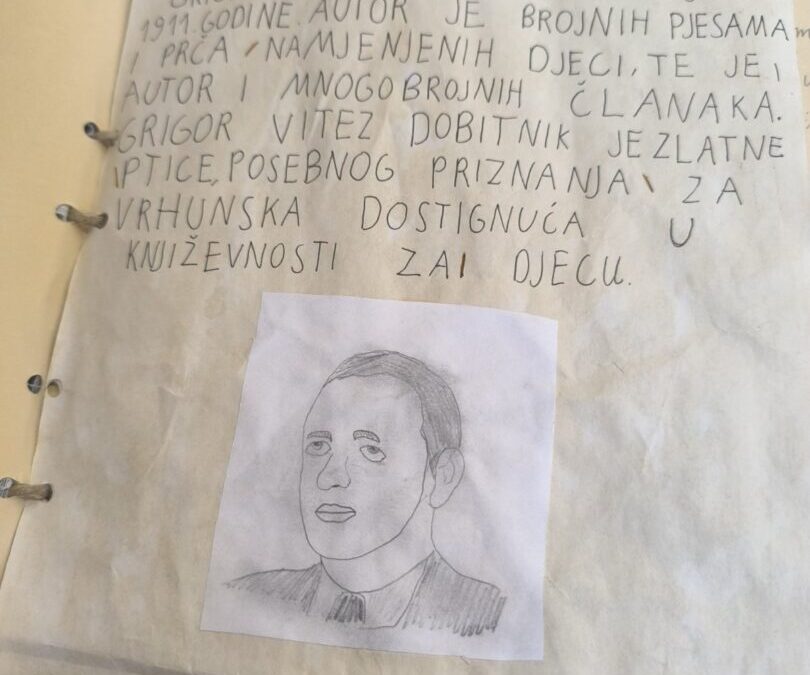 1911. GODINE. AUTOR JE BROJNIH PJESAMA
I PRČA NAMJENJENIH DJECI, TE JE
AUTOR I MNOGOBROJNIH ČLANAKA.
GRIGOR VITEZ DOBITNIK JE ZLATNE
PTICE, POSEBNOG PRIZNANJA ZA
VRHUNSKA DOSTIGNUĆA U
KNJIŽEVNOSTI ZA DJECU.